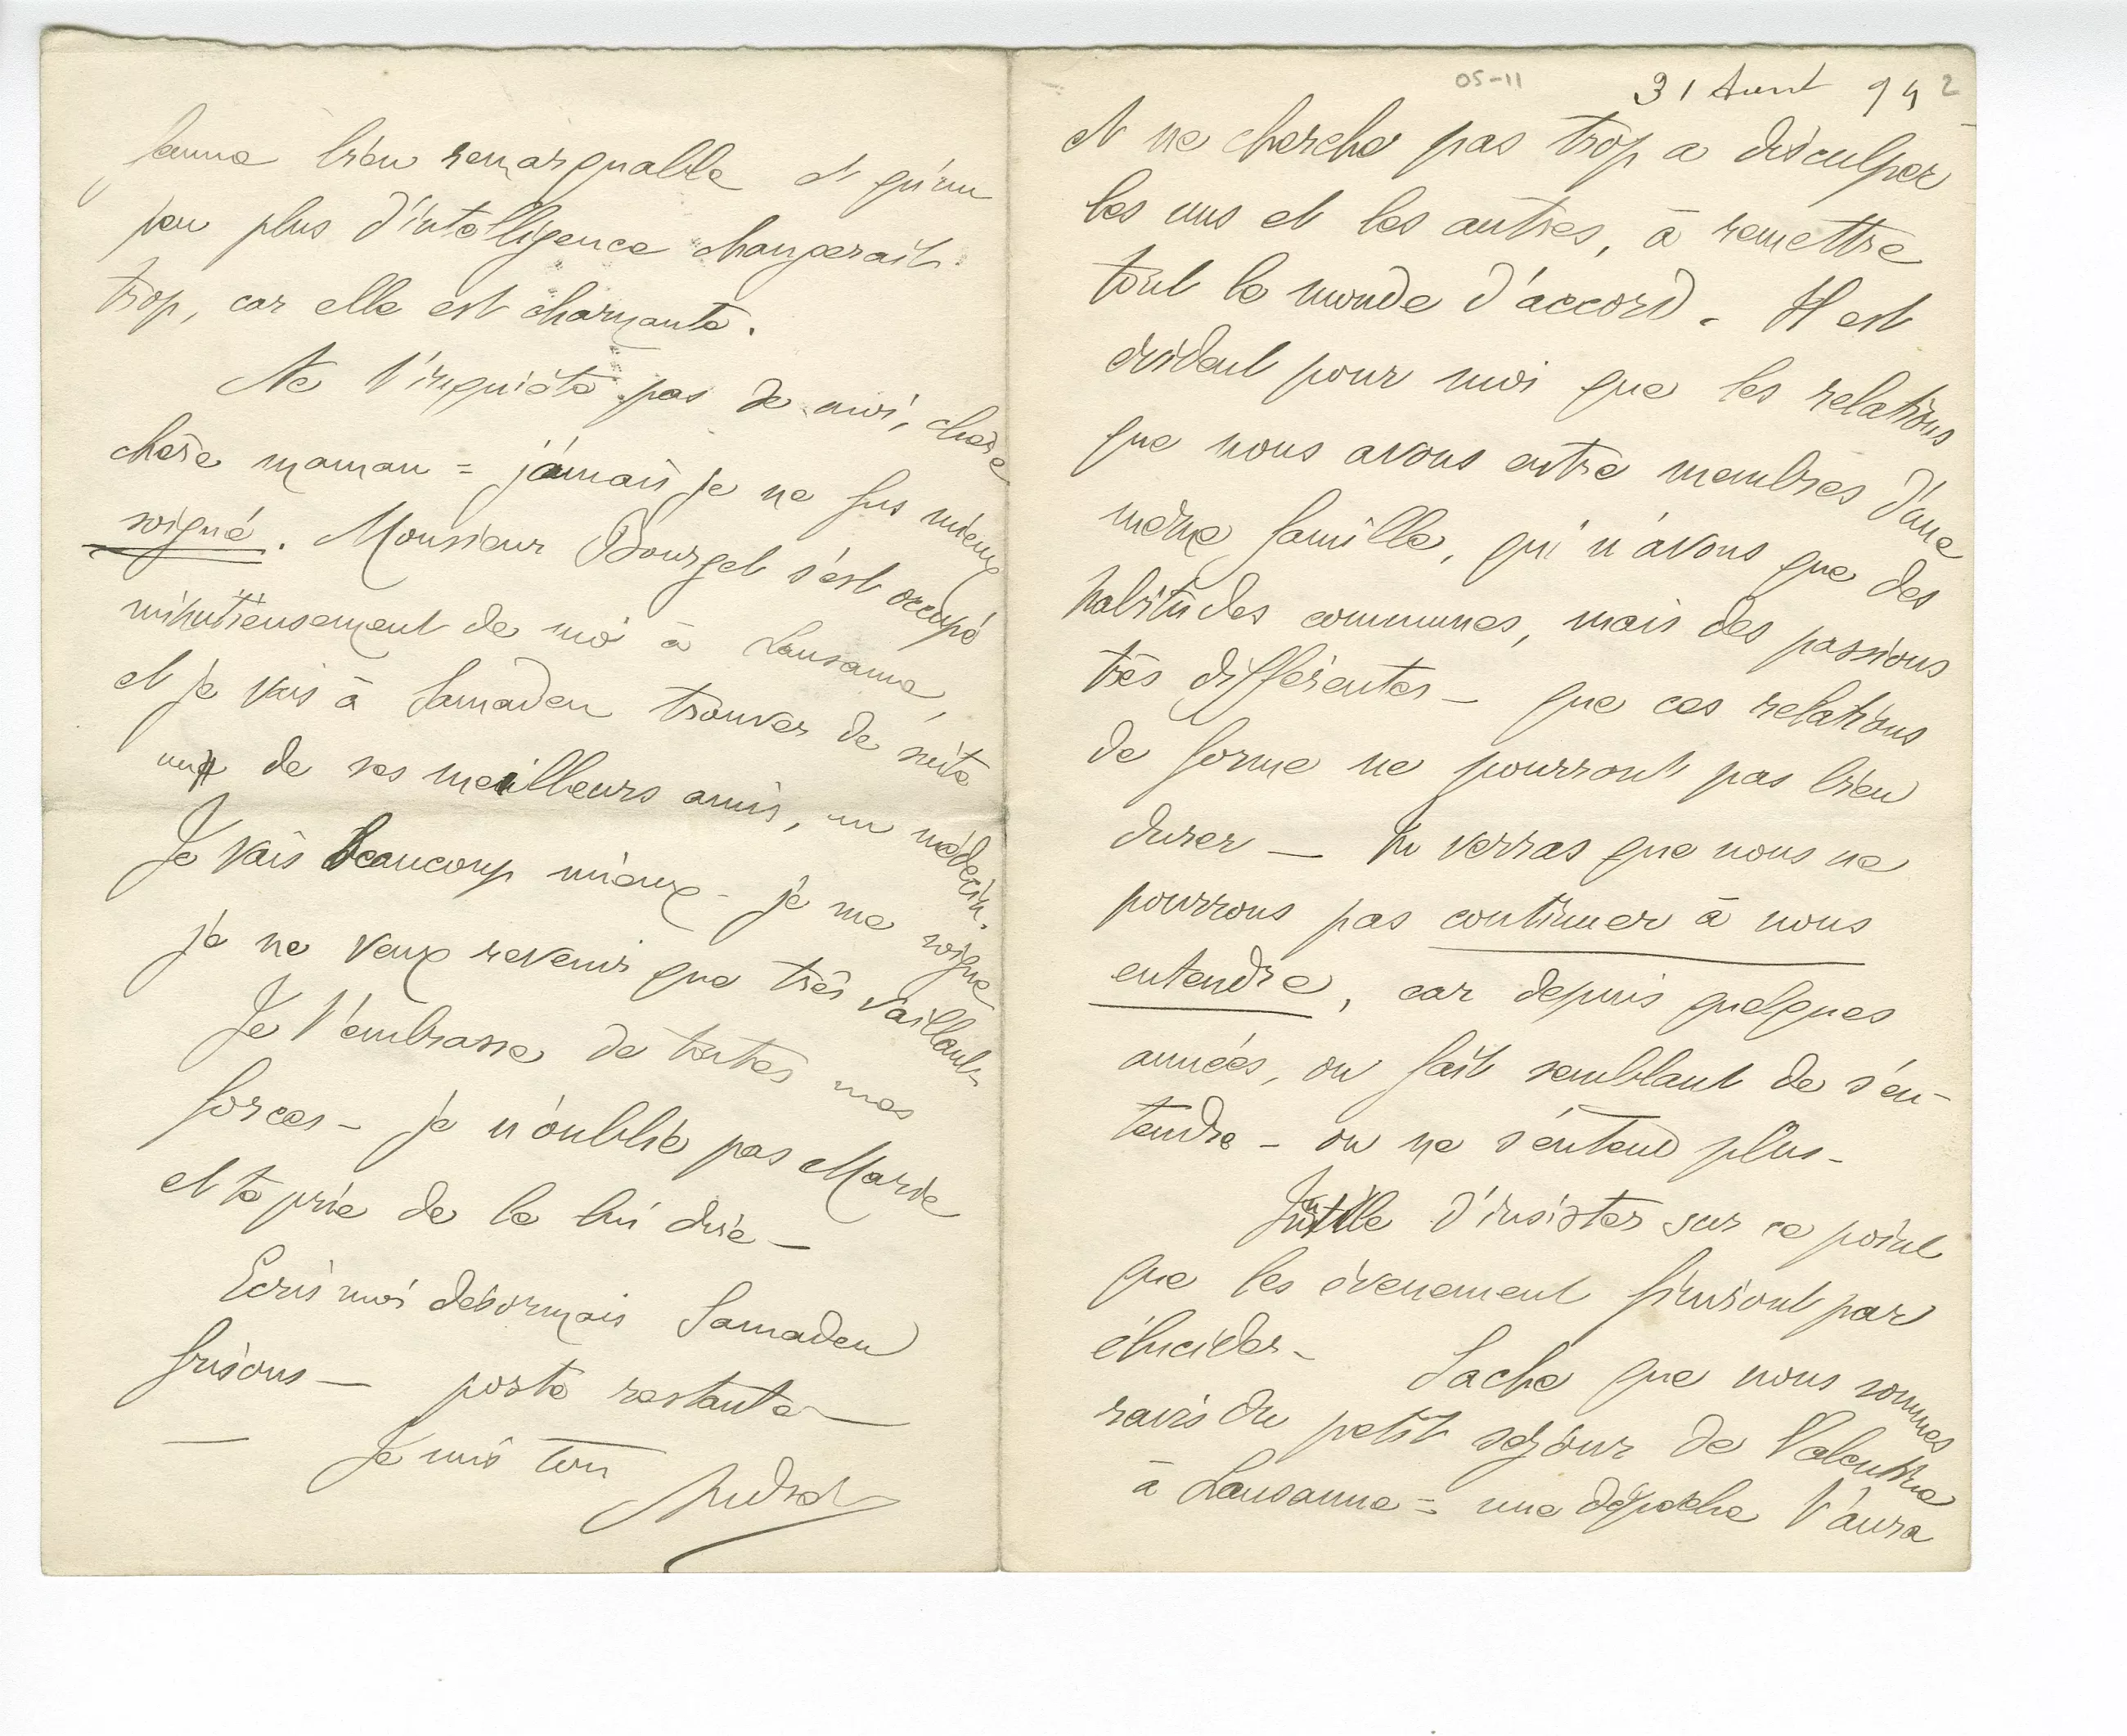 femme bien remarquable et qu'un
peu plus d'intelligence changerait
trop, car elle est charmante.
Ne t'inquiète pas de moi, chère
chère maman = jamais je ne fus mieux
soigné. Monsieur Bourget s'est occupé
minutieusement de moi à Lausanne,
et je vais à Samaden trouver de suite
un de ses meilleurs amis, un médecin.
Je vais beaucoup mieux - je me soigne
je ne veux revenir que très vaillant -
Je t'embrasse de toutes mes
forces - je n'oublie pas Marie
et te prie de le lui dire -
Ecris moi désormais Samaden
Grisons - poste restante -
- Je suis ton
André
05-11 31 Aout 94 2
et ne cherche pas trop a disculper
les uns et les autres, à remettre
tout le monde d'accord. Il est
évident pour moi que les relations
que nous avons entre membres d'une
même famille, qui n'avons que des
habitudes communes, mais des passions
très différentes - que ces relations
de forme ne pourront pas bien
durer - tu verras que nous ne
pourrons pas continuer à nous
entendre, car depuis quelques
années, on fait semblant de s'en-
tendre - on ne s'entend plus -
Inutile d'insister sur ce point
que les évenement finiront par
élucider - Sache que nous sommes
ravis du petit séjour de Valentine
à Lausanne = une dépêche t'aura